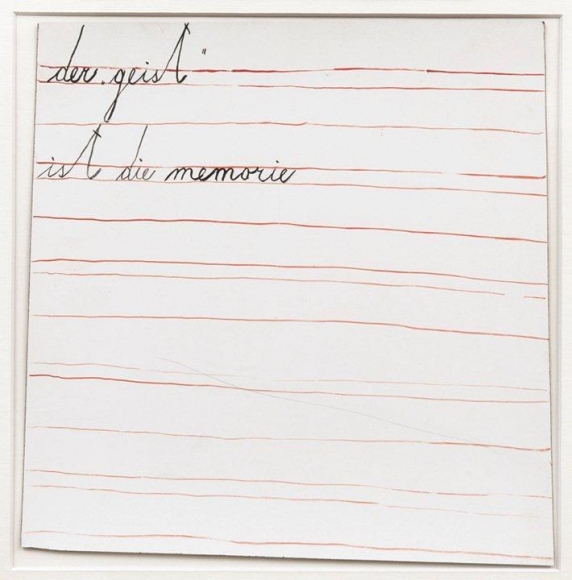 der. geist "
ist die memorie